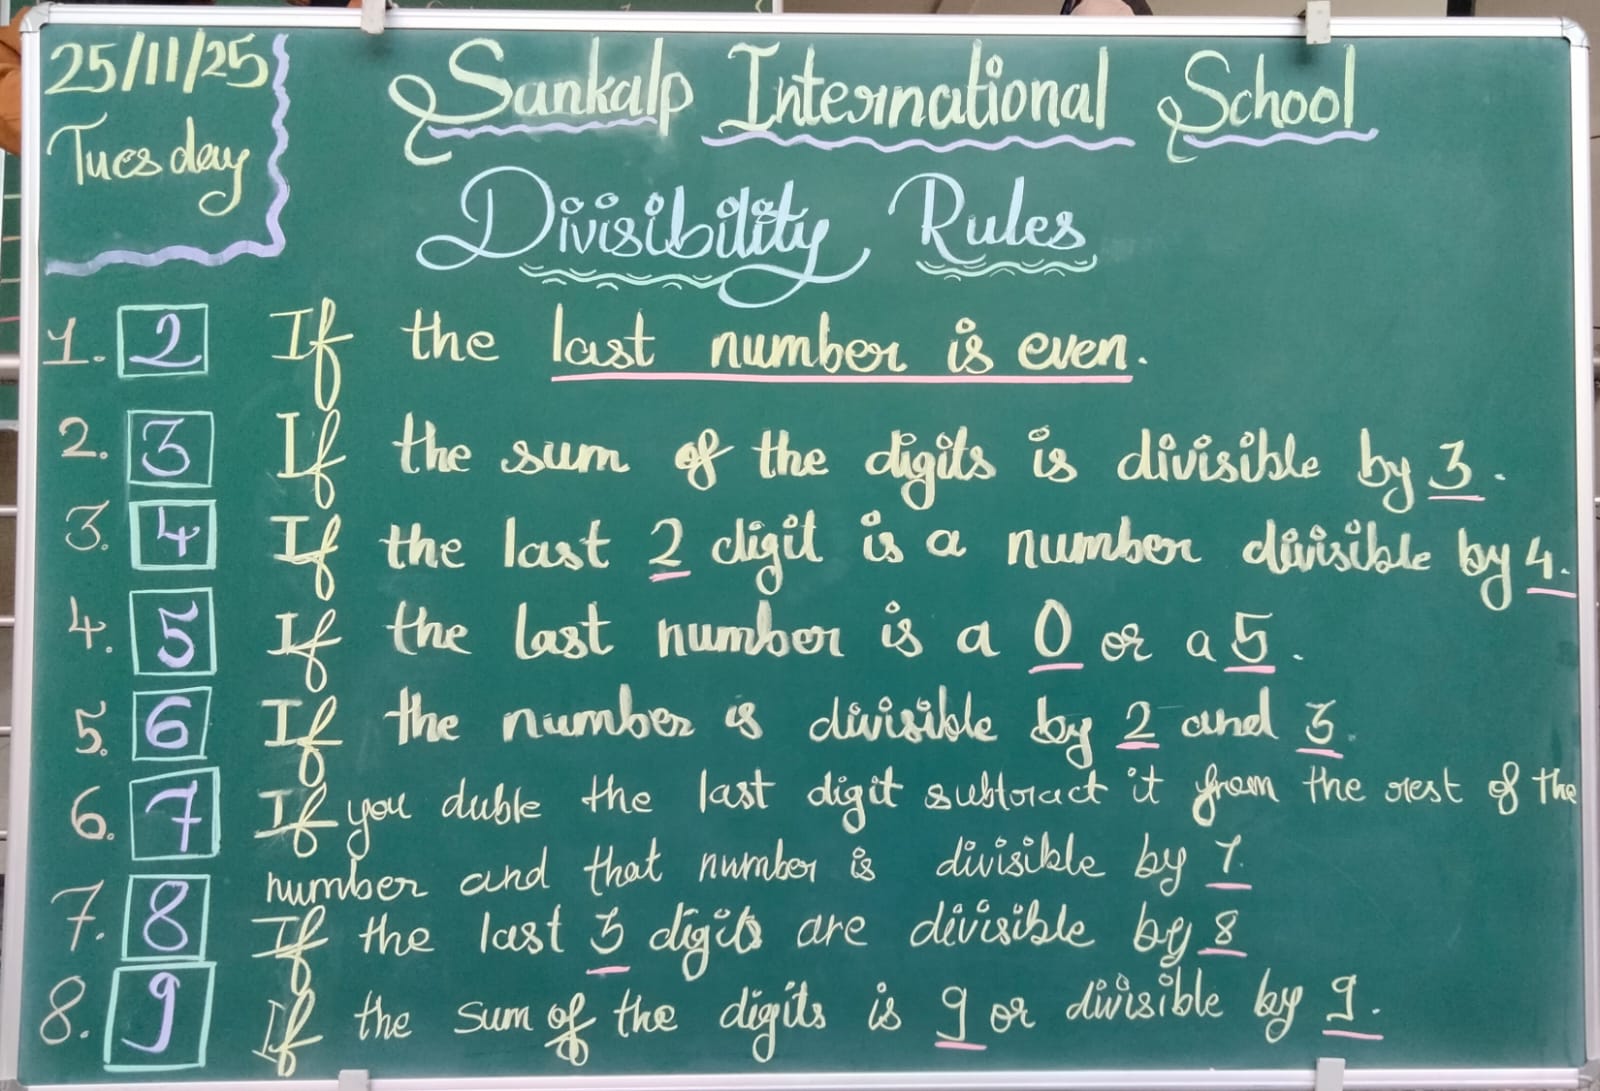 25/11/25
Tuesday
Sankalp International School
Divisibility Rules
1. 2 If the last number is even.
2. 3 If the sum of the digits is divisible by 3.
3. 4 If the last 2 digit is a number divisible by 4.
4. 5 If the last number is a 0 or a 5.
5. 6 If the number is divisible by 2 and 3.
6. 7 If you duble the last digit subtract it from the rest of the
number and that number is divisible by 7.
7. 8 If the last 3 digits are divisible by 8
8. 9 If the sum of the digits is 9 or divisible by 9.